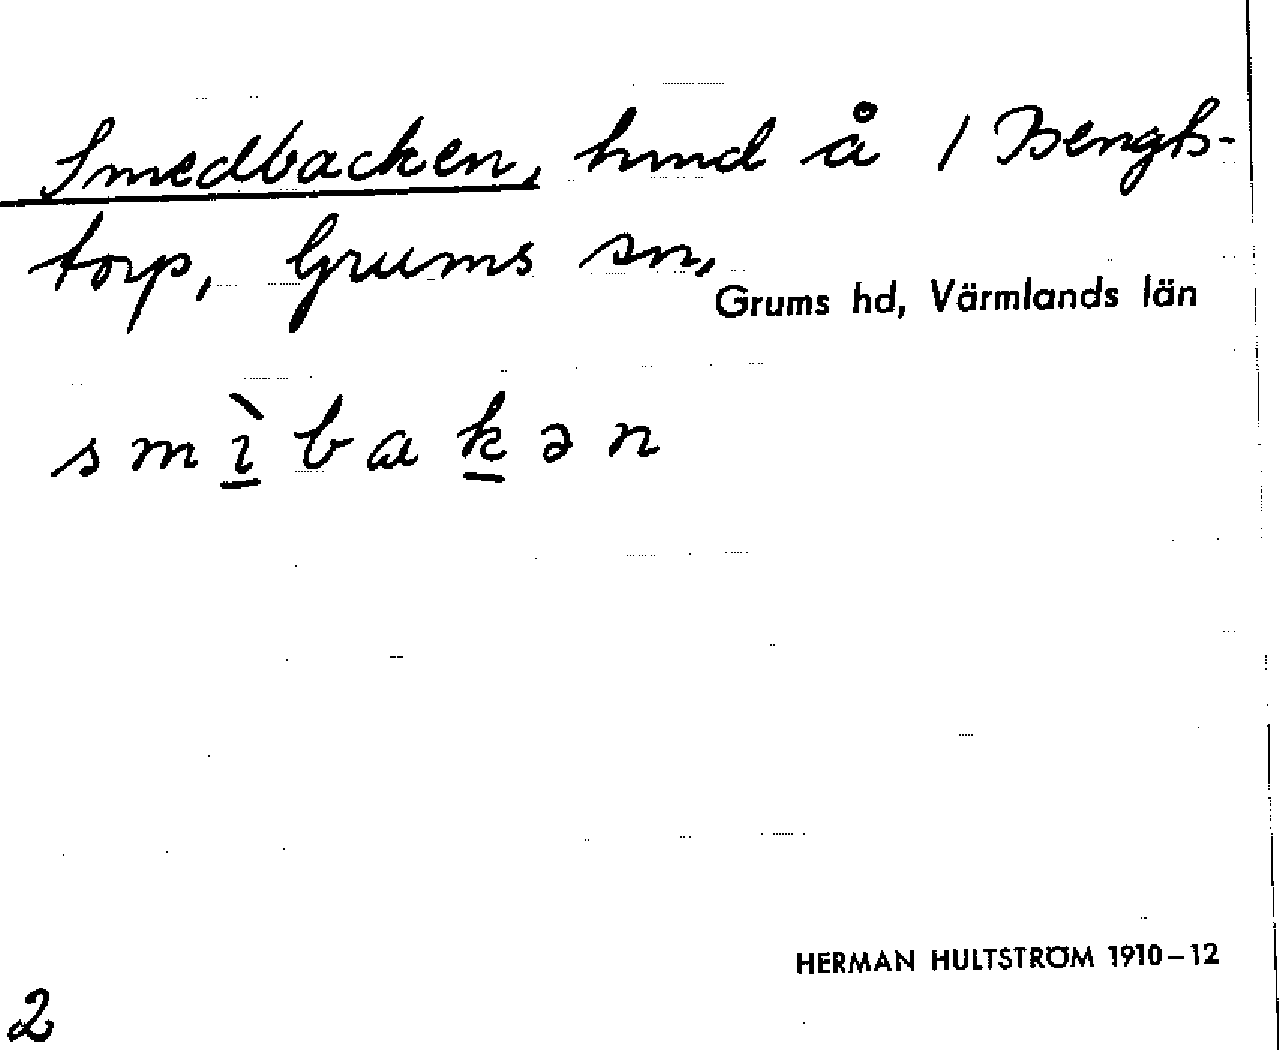 Smedbacken, hmd å 1 Bengts-
torp, Grums sn,
Grums hd, Värmlands län
smìbakən
HERMAN HULTSTRÖM 1910–12
2